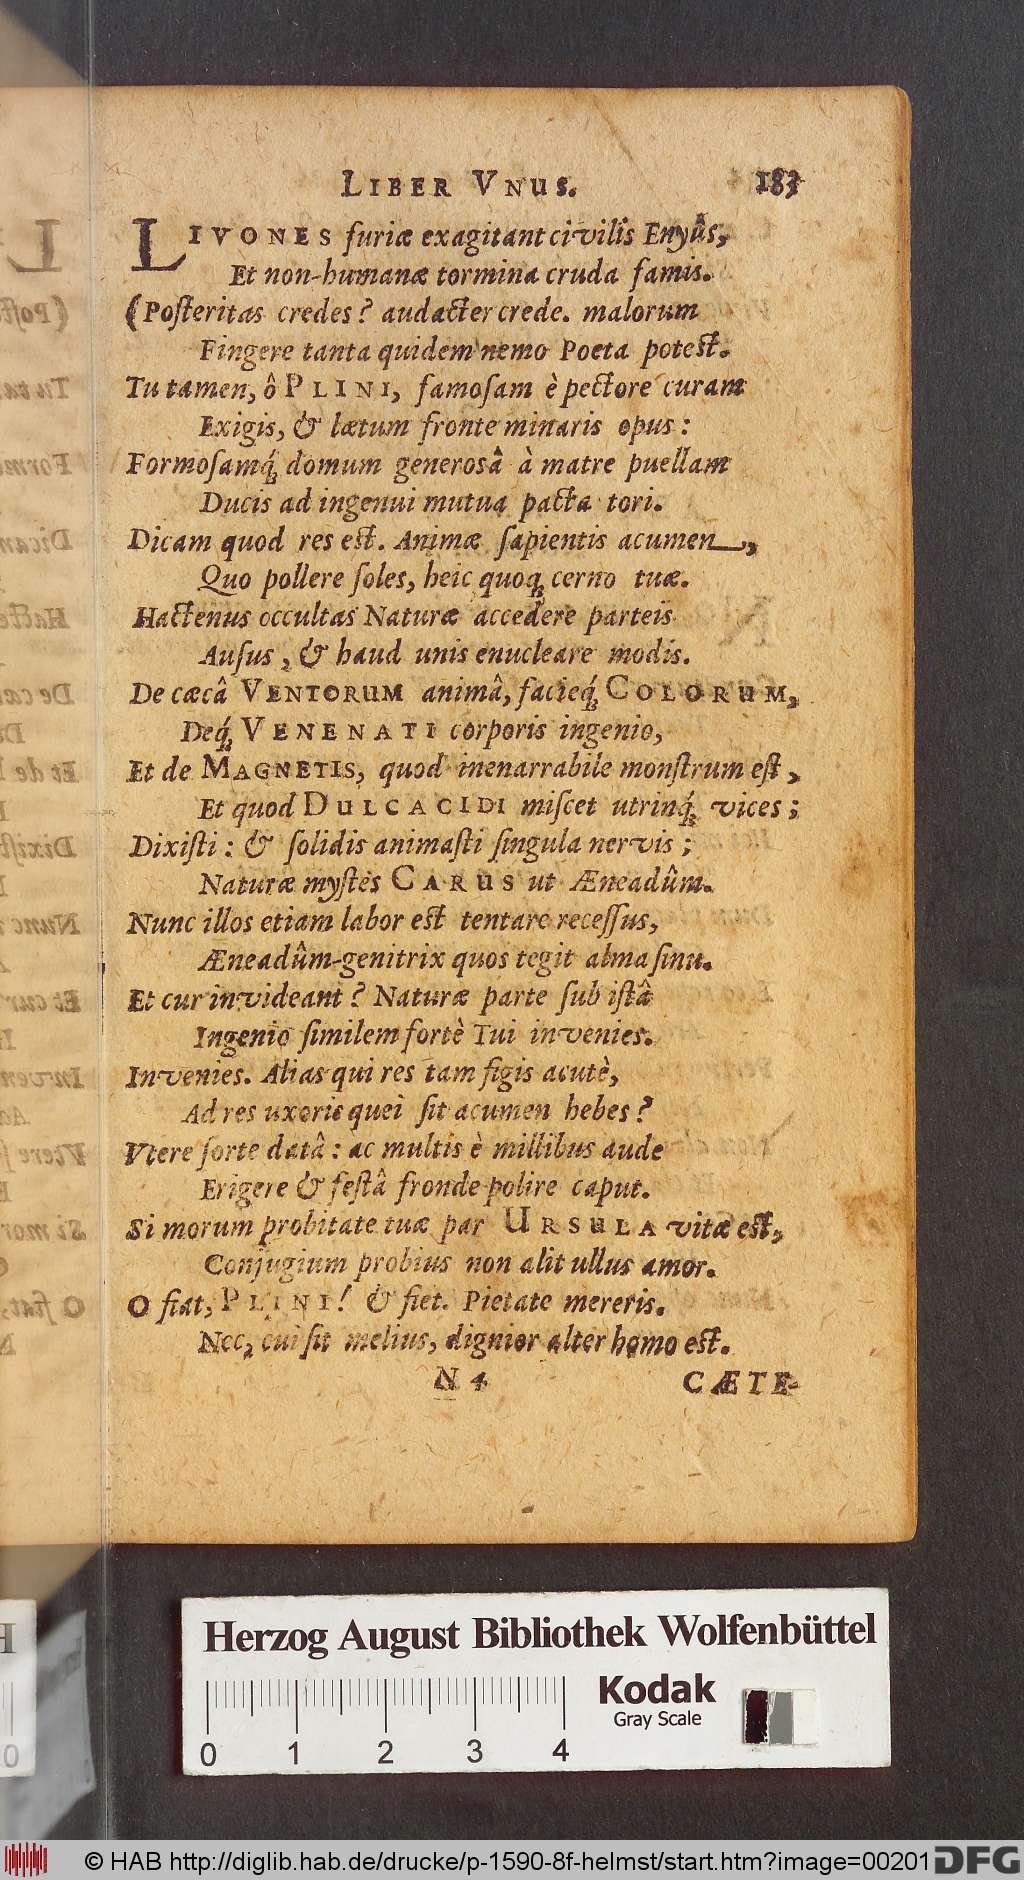 LIBER VNUS. 183
LIVONES furiæ exagitant civilis Enyûs,
Et non-humanæ tormina cruda famis.
(Posteritas credes? audacter crede. malorum
Fingere tanta quidem nemo Poeta potest.
Tu tamen, ô PLINI, famosam è pectore curam
Exigis, & lætum fronte minaris opus:
Formosamq́; domum generosâ à matre puellam
Ducis ad ingenui mutua pacta tori.
Dicam quod res est. Animæ sapientis acumen,
Quo pollere soles, heic quoq; cerno tuæ.
Hactenus occultas Naturæ accedere parteis
Ausus, & haud unis enucleare modis.
De cæcâ VENTORUM animâ, facieq́; COLORUM,
Deq́; VENENATI corporis ingenio,
Et de MAGNETIS, quod inenarrabile monstrum est,
Et quod DULCACIDI miscet utrinq́; vices;
Dixisti: & solidis animasti singula nervis;
Naturæ mystes CARUS ut Æneadûm.
Nunc illos etiam labor est tentare recessus,
Æneadûm-genitrix quos tegit alma sinu.
Et cur invideant? Naturæ parte sub istâ
Ingenio similem fortè Tui invenies.
Invenies. Alias qui res tam figis acutè,
Ad res uxoris quei sit acumen hebes?
Vtere sorte datâ: ac multis è millibus aude
Erigere & festâ fronde polire caput.
Si morum probitate tuæ par URSULA vitæ est,
Conjugium probius non alit ullus amor.
O fiat, PLINI! & fiet. Pietate mereris.
Nec, cui sit melius, dignior alter homo est.
N 4 CÆTE-
Herzog August Bibliothek Wolfenbüttel
Kodak
Gray Scale
0 1 2 3 4
© HAB http://diglib.hab.de/drucke/p-1590-8f-helmst/start.htm?image=00201 DFG